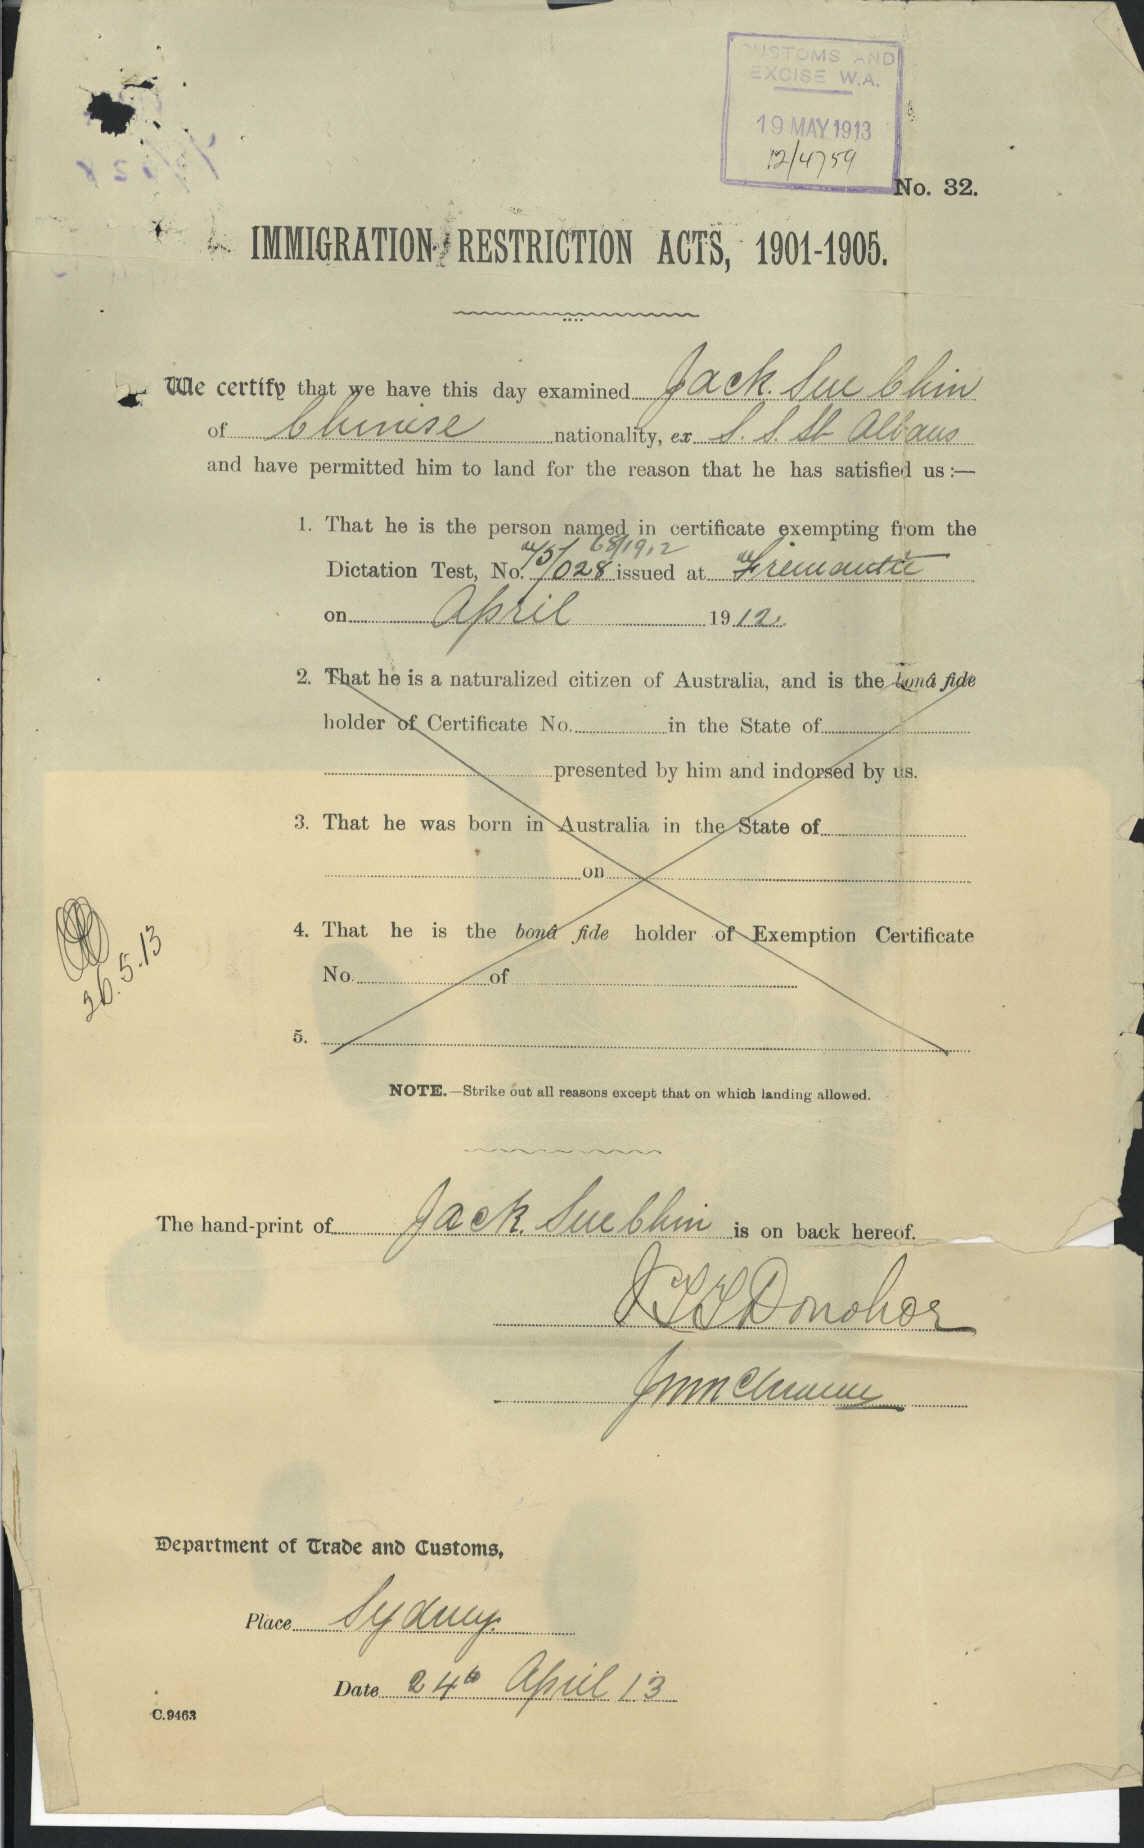 CUSTOMS AND
EXCISE W.A.
19 MAY 1913
12/4759
No. 32.
IMMIGRATION RESTRICTION ACTS, 1901-1905.
We certify that we have this day examined Jack. Sue Chin
of Chinise nationality, ex S. S. St Albans
and have permitted him to land for the reason that he has satisfied us :—
1. That he is the person named in certificate exempting from the
68/1912
Dictation Test, No. 5/028 issued at Fremantle
on April 1912.
2. That he is a naturalized citizen of Australia, and is the bonâ fide
holder of Certificate No. in the State of
presented by him and indorsed by us.
3. That he was born in Australia in the State of
on
4. That he is the bonâ fide holder of Exemption Certificate
No. of
5.
26.5.13
NOTE.—Strike out all reasons except that on which landing allowed.
The hand-print of Jack. Sue Chin is on back hereof.
J T T Donohoe
Department of Trade and Customs,
Place Sydney.
Date 24th April 13
C.9463